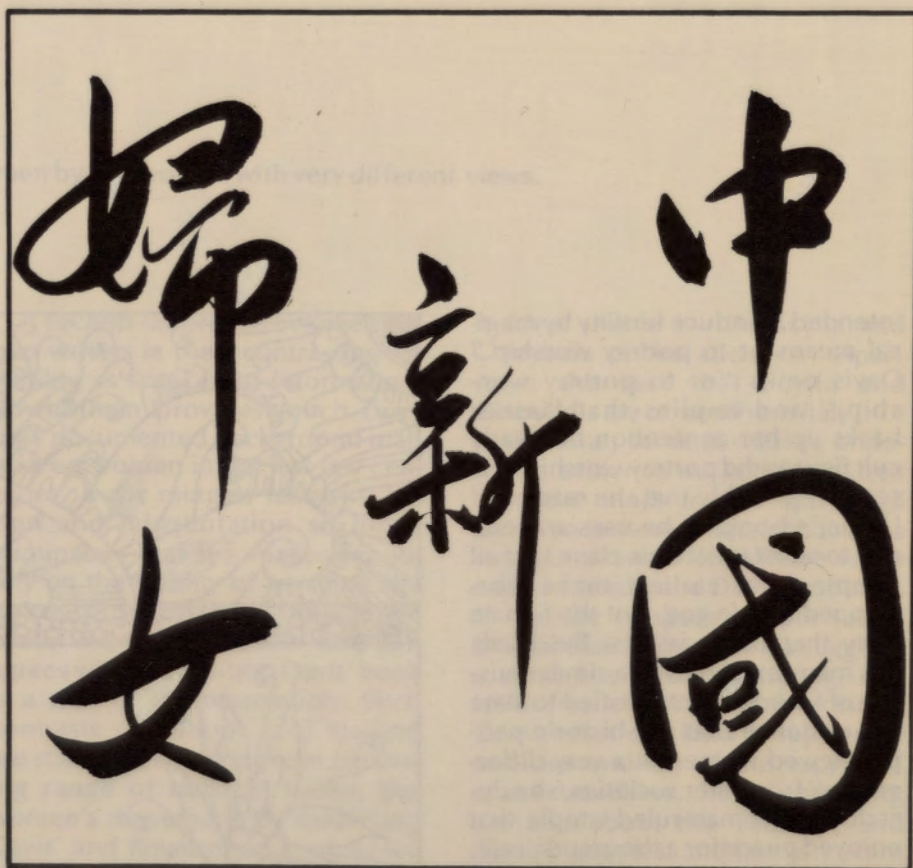 中國
新
婦女